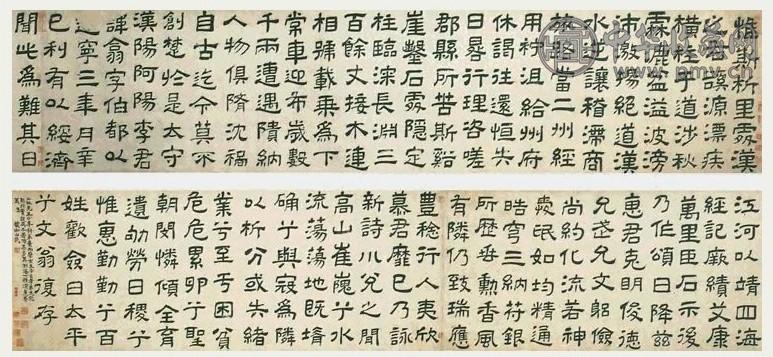 惟斯析里處漢
之右謨源漂疾
橫柱于道涉秋
霖漉盆溢波滂
沛激揚絕道漢
水逆讓稽滯商
旅路當二州經
用柠沮給州府
休謁往還恒失
日晷行理咨嗟
郡縣所苦斯谿
崖鑿石處隱定
柱臨深長淵三
百餘丈接木連
相號載乘爲下
常車迎布歲數
千兩遭遇隤納
人物俱隋沈禍
自古迄今莫不
創楚於是太守
漢陽阿陽李君
諱翕字伯都以
建寧三年月辛
巳利有以綏濟
聞此爲難其日
江河以靖四海
經記厥績艾康
萬里臣石示後
乃作頌曰降茲
惠君克明俊德
允武允文躬儉
尚約化流若神
愛氓如均精通
晧穹三納苻銀
所歷垂勳香風
有隣仍致瑞應
豐稔行人夷欣
慕君靡已乃詠
新詩川兮之閒
高山崔巍兮水
流蕩蕩地既塉
确兮與寇爲隣
以析分或失緒
業兮至于困貧
危危累卵兮聖
朝閔憐傾全育
遺劬勞日稷兮
惟惠勤勤兮百
姓歡僉曰太平
兮文翁復存
中华收藏网
www.pmv.cn